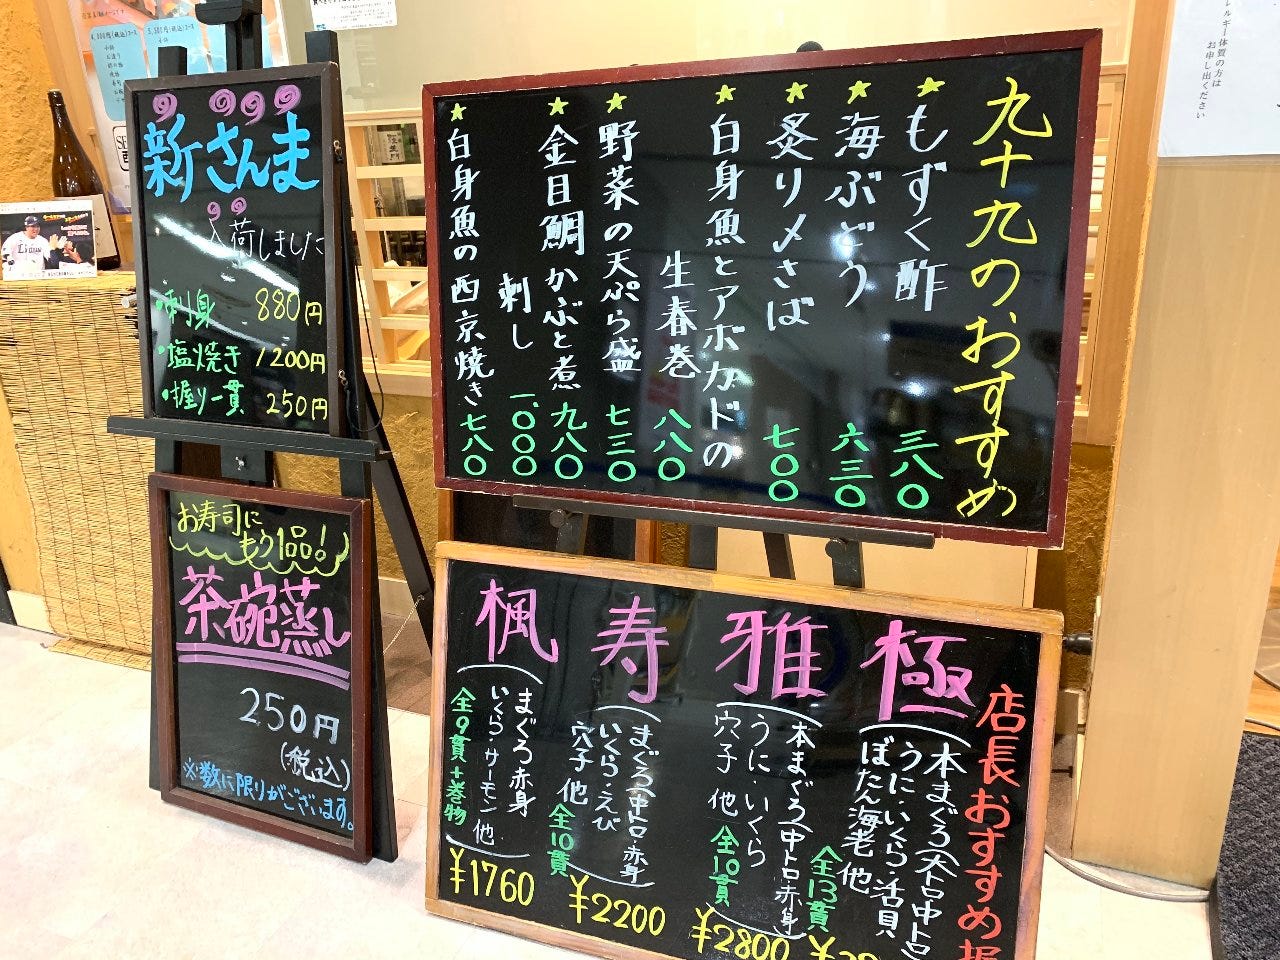 新さんま
入荷しました
・刺身 880円
・塩焼き 1200円
・握り一貫 250円
お寿司に
もう1品!
茶碗蒸し
250円
(税込)
※数に限りがございます。
九十九のおすすめ
もずく酢 三八〇
海ぶどう 六三〇
炙り〆さば 七〇〇
白身魚とアボカドの
生春巻 八八〇
野菜の天ぷら盛 七三〇
金目鯛かぶと煮 九八〇
刺し 一、〇〇〇
白身魚の西京焼き 七八〇
店長おすすめ握
極
本まぐろ(大トロ中トロ)
うに・いくら・活貝
ぼたん海老 他
全13貫
雅
本まぐろ(中トロ・赤身)
うに・いくら
穴子 他
全10貫
¥2800
寿
まぐろ(中トロ・赤身)
いくら・えび
穴子 他
全10貫
¥2200
楓
まぐろ赤身
いくら・サーモン 他
全9貫+巻物
¥1760
4,000円(税込)コース
5,500円(税込)コース
Lions
レルギー体質の方は
お申し出ください